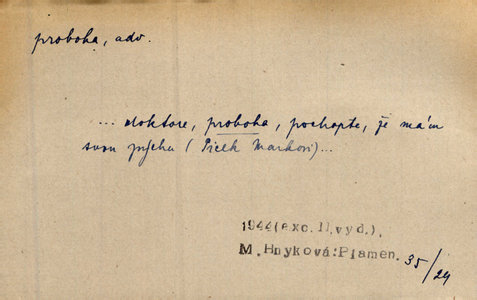 proboha, adv.
... doktore, proboha, pochopte, že mám
svou pýchu (Picek Markovi)...
1944(exc.II.vyd.),
M.Hnyková:Plamen. 35/24